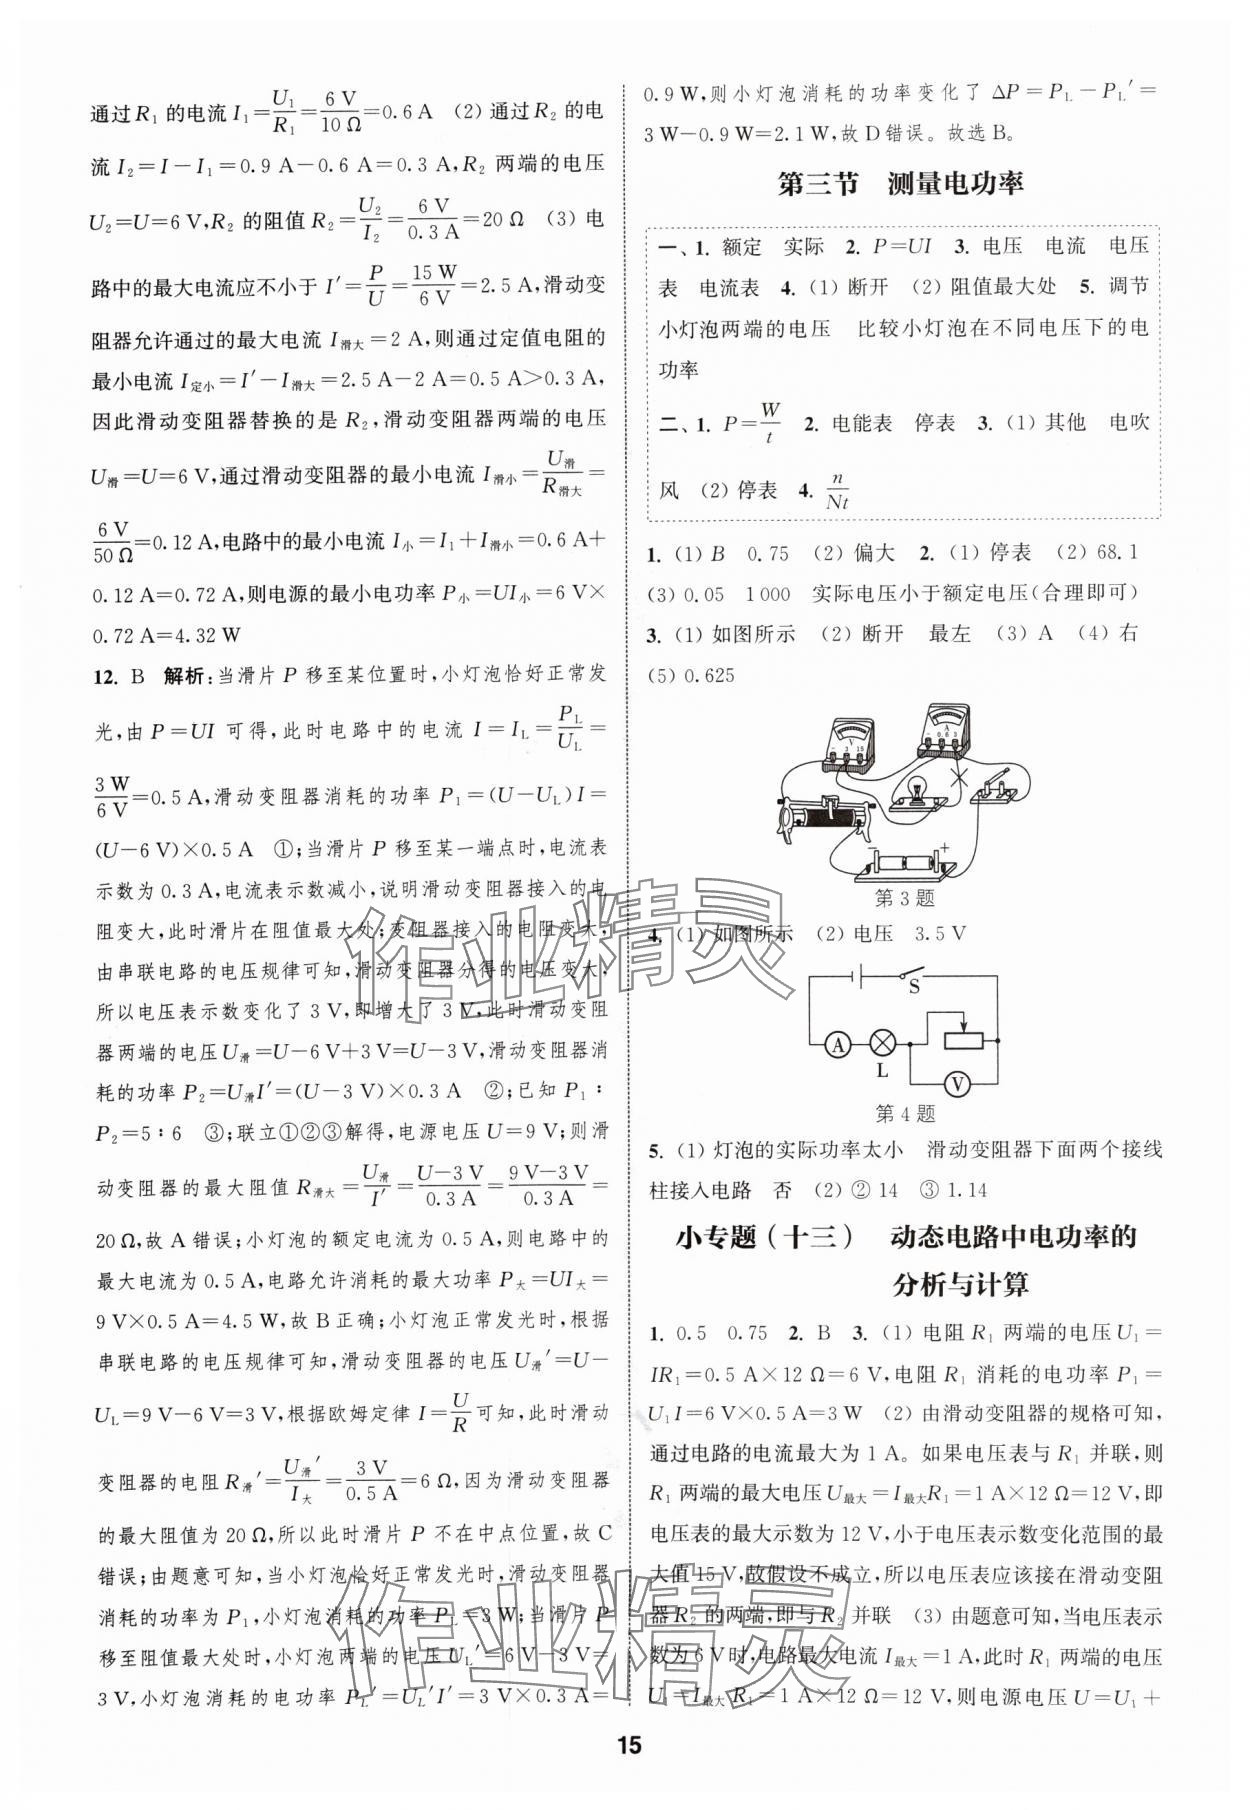 通过R₁ 的电流 I₁=U₁/R₁=6 V/10 Ω=0.6 A (2) 通过R₂ 的电
流 I₂=I-I₁=0.9 A-0.6 A=0.3 A,R₂ 两端的电压
U₂=U=6 V,R₂ 的阻值 R₂=U₂/I₂=6 V/0.3 A=20 Ω (3) 电
路中的最大电流应不小于 I′=P/U=15 W/6 V=2.5 A,滑动变
阻器允许通过的最大电流 I滑大=2 A,则通过定值电阻的
最小电流 I定小=I′-I滑大=2.5 A-2 A=0.5 A>0.3 A,
因此滑动变阻器替换的是 R₂,滑动变阻器两端的电压
U滑=U=6 V,通过滑动变阻器的最小电流 I滑小=U滑/R滑大=
6 V/50 Ω=0.12 A,电路中的最小电流 I小=I₁+I滑小=0.6 A+
0.12 A=0.72 A,则电源的最小电功率 P小=UI小=6 V×
0.72 A=4.32 W
12. B 解析:当滑片 P 移至某位置时,小灯泡恰好正常发
光,由 P=UI 可得,此时电路中的电流 I=I_L=P_L/U_L=
3 W/6 V=0.5 A,滑动变阻器消耗的功率 P₁=(U-U_L)I=
(U-6 V)×0.5 A ①;当滑片 P 移至某一端点时,电流表
示数为 0.3 A,电流表示数减小,说明滑动变阻器接入的电
阻变大,此时滑片在阻值最大处;变阻器接入的电阻变大,
由串联电路的电压规律可知,滑动变阻器分得的电压变大,
所以电压表示数变化了 3 V,即增大了 3 V,此时滑动变阻
器两端的电压U滑=U-6 V+3 V=U-3 V,滑动变阻器消
耗的功率 P₂=U滑I′=(U-3 V)×0.3 A ②;已知 P₁∶
P₂=5∶6 ③;联立①②③解得,电源电压U=9 V;则滑
动变阻器的最大阻值 R滑大=U滑/I′=U-3 V/0.3 A=9 V-3 V/0.3 A=
20 Ω,故 A 错误;小灯泡的额定电流为 0.5 A,则电路中的
最大电流为 0.5 A,电路允许消耗的最大功率 P大=UI大=
9 V×0.5 A=4.5 W,故B正确;小灯泡正常发光时,根据
串联电路的电压规律可知,滑动变阻器的电压 U滑′=U-
U_L=9 V-6 V=3 V,根据欧姆定律 I=U/R可知,此时滑动
变阻器的电阻 R滑′=U滑′/I大=3 V/0.5 A=6 Ω,因为滑动变阻器
的最大阻值为 20 Ω,所以此时滑片 P 不在中点位置,故 C
错误;由题意可知,当小灯泡恰好正常发光时,滑动变阻器
消耗的功率为 P₁,小灯泡消耗的功率 P_L=3 W;当滑片 P
移至阻值最大处时,小灯泡两端的电压 U_L′=6 V-3 V=
3 V,小灯泡消耗的电功率 P_L′=U_L′I′=3 V×0.3 A=
0.9 W,则小灯泡消耗的功率变化了 ΔP=P_L-P_L′=
3 W-0.9 W=2.1 W,故 D 错误。故选 B。
第三节 测量电功率
一、1. 额定 实际 2. P=UI 3. 电压 电流 电压
表 电流表 4. (1) 断开 (2) 阻值最大处 5. 调节
小灯泡两端的电压 比较小灯泡在不同电压下的电
功率
二、1. P=W/t 2. 电能表 停表 3. (1) 其他 电吹
风 (2) 停表 4. n/Nt
1. (1) B 0.75 (2) 偏大 2. (1) 停表 (2) 68.1
(3) 0.05 1 000 实际电压小于额定电压(合理即可)
3. (1) 如图所示 (2) 断开 最左 (3) A (4) 右
(5) 0.625
V
- 3 15
A
- 0.6 3
- +
第 3 题
4. (1) 如图所示 (2) 电压 3.5 V
S
A
L
V
第 4 题
5. (1) 灯泡的实际功率太小 滑动变阻器下面两个接线
柱接入电路 否 (2) ② 14 ③ 1.14
小专题(十三) 动态电路中电功率的
分析与计算
1. 0.5 0.75 2. B 3. (1) 电阻 R₁ 两端的电压 U₁=
IR₁=0.5 A×12 Ω=6 V,电阻 R₁ 消耗的电功率 P₁=
U₁I=6 V×0.5 A=3 W (2) 由滑动变阻器的规格可知,
通过电路的电流最大为 1 A。如果电压表与 R₁ 并联,则
R₁ 两端的最大电压U最大=I最大R₁=1 A×12 Ω=12 V,即
电压表的最大示数为 12 V,小于电压表示数变化范围的最
大值 15 V,故假设不成立,所以电压表应该接在滑动变阻
器 R₂ 的两端,即与 R₂ 并联 (3) 由题意可知,当电压表示
数为 6 V时,电路最大电流 I最大=1 A,此时 R₁ 两端的电压
U₁=I最大R₁=1 A×12 Ω=12 V,则电源电压 U=U₁+
15
作业精灵
作业精灵